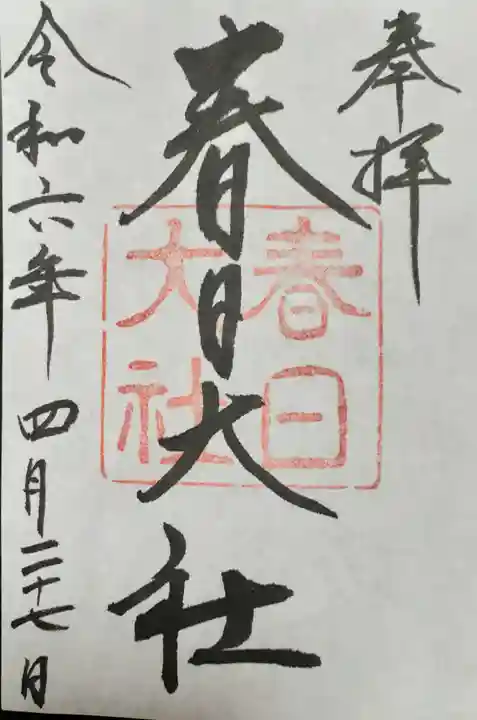 奉拝
春日大社
春日
大社
令和六年四月二十七日